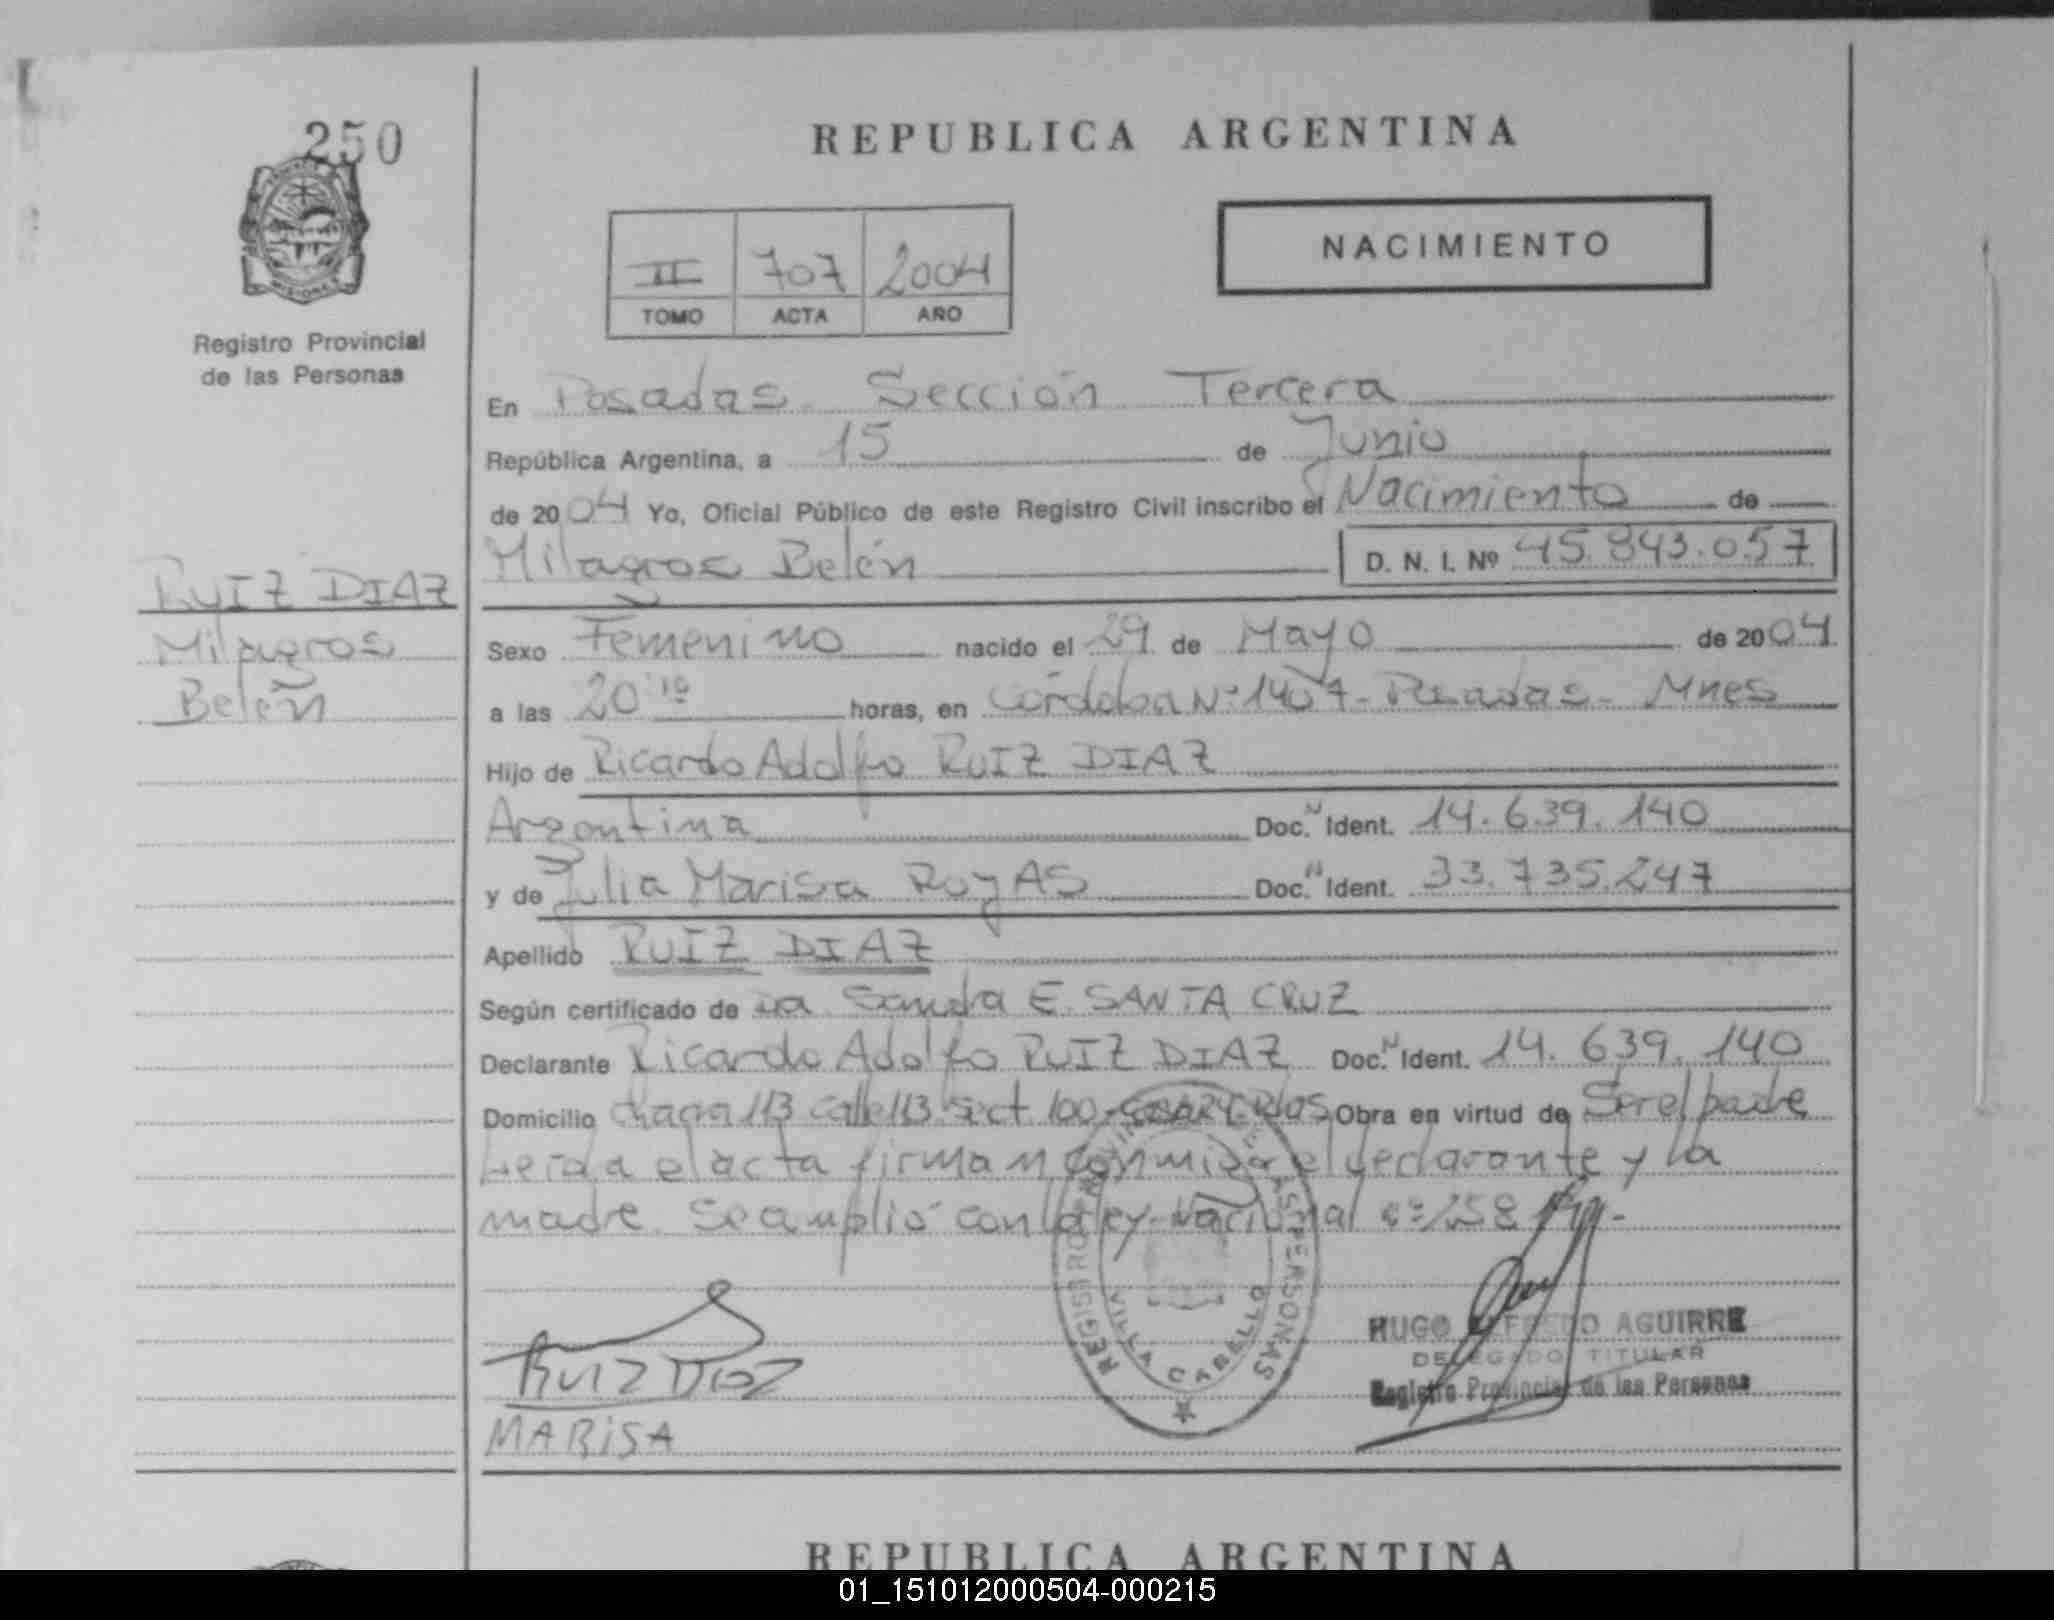 250
REPUBLICA ARGENTINA
MISIONES
NACIMIENTO
II 707 2004
TOMO ACTA AÑO
Registro Provincial
de las Personas
En Posadas Sección Tercera
República Argentina, a 15 de Junio
de 2004 Yo, Oficial Público de este Registro Civil inscribo el Nacimiento de
Milagros Belén D. N. I. Nº 45.843.057
RUIZ DIAZ
Milagros
Belén
Sexo Femenino nacido el 29 de Mayo de 2004
a las 20 10 horas, en Córdoba Nº 1407 - Posadas - Mnes
Hijo de Ricardo Adolfo RUIZ DIAZ
Argentina Doc. N Ident. 14.639.140
y de Julia Marisa ROJAS Doc. N Ident. 33.735.247
Apellido RUIZ DIAZ
Según certificado de Sandra E. SANTA CRUZ
Declarante Ricardo Adolfo RUIZ DIAZ Doc. N Ident. 14.639.140
Domicilio chacra 113 calle 113 sect. 100 Obra en virtud de Ser el padre
Leída el acta firman conmigo el declarante y la
madre. Se amplió con la ley Nacional
REGISTRO PROVINCIAL DE LAS PERSONAS
VILLA CABALLO
HUGO ALFREDO AGUIRRE
DELEGADO TITULAR
Registro Provincial de las Personas
RUIZ DIAZ
MARISA
REPUBLICA ARGENTINA
01_151012000504-000215